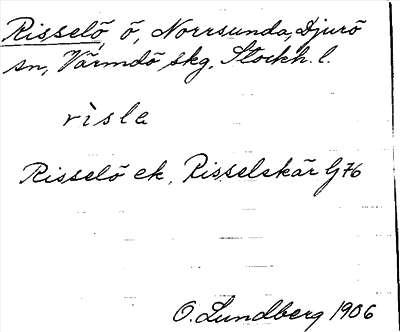 Risselö ö, Norrsunda, Djurö
sn, Värmdö skg, Stockh. l.
rìsla
Risselö ek, Risselskär G76
O. Lundberg 1906